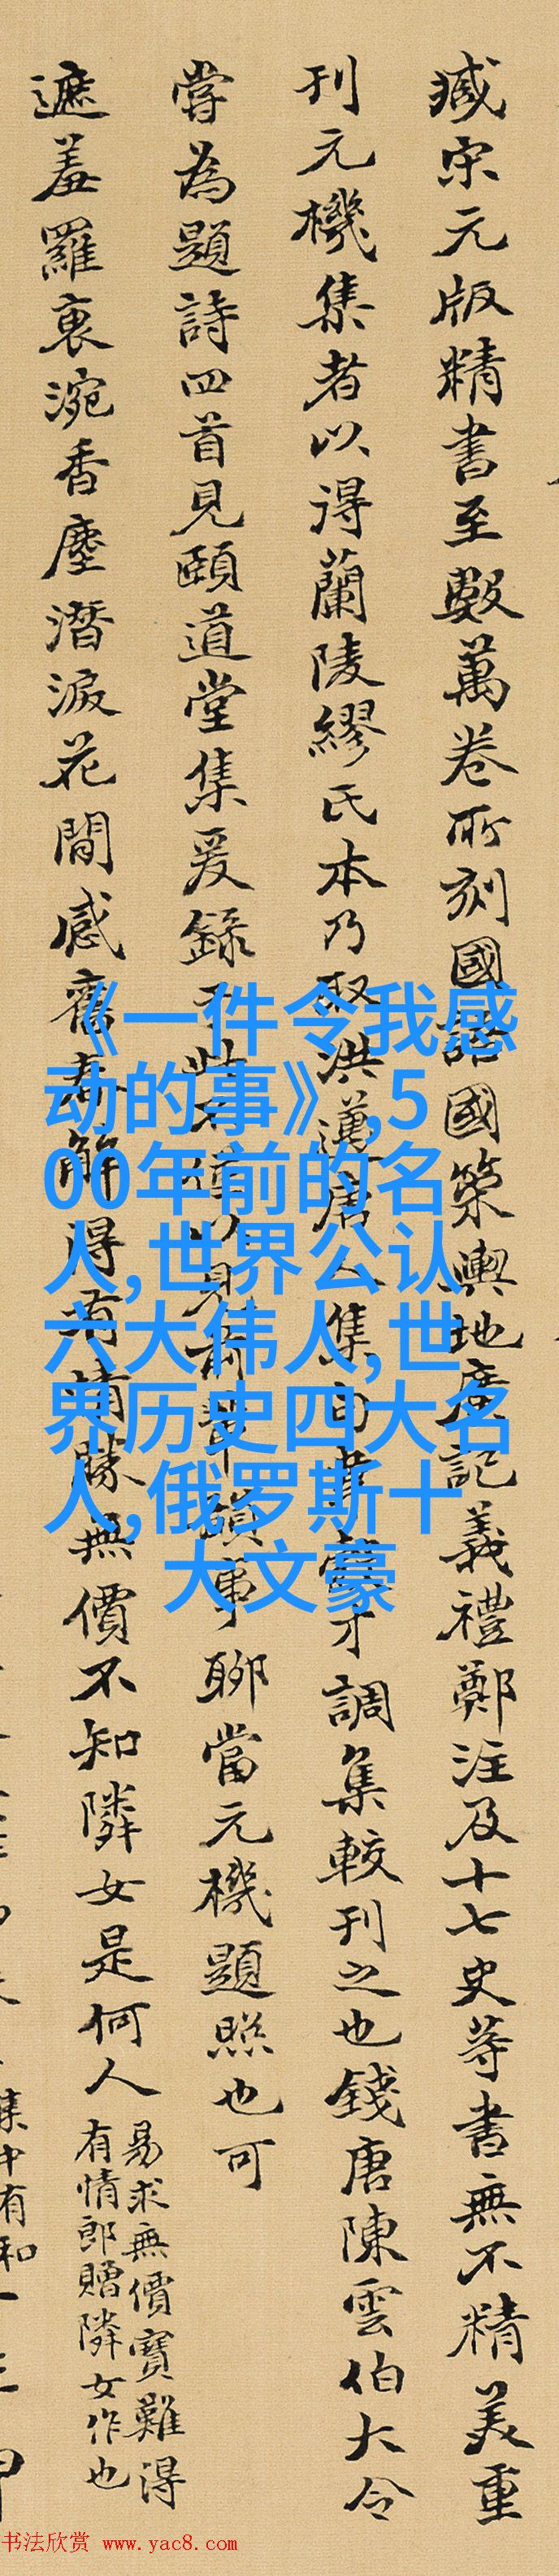 臧宋元版精書至數萬卷所刻國語國策輿地廣記義禮鄭注及十七史等書無不精美重
刊元機集者以得蘭陵繆氏本乃取洪邁唐人集句書才調集較刊之也錢唐陳雲伯大令
嘗為題詩四首見頤道堂集爰錄于事聊當元機題照也可
遮羞羅裏涴香塵潛淚花間感舊春解得有情勝無價不知隣女是何人
易求無價寶難得
有情郎贈隣女作也
集中有和一
《一件令我感
动的事》,5
00年前的名
人,世界公认
六大伟人,世
界历史四大名
人,俄罗斯十
大文豪
书法欣赏 www.yac8.com